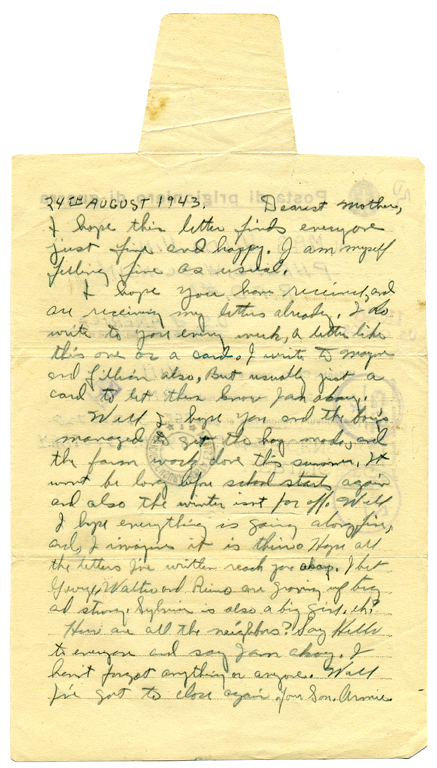 24TH AUGUST 1943. Dearest Mother,
I hope this letter finds everyone
just fine and happy. I am myself
feeling fine as usual.
I hope you have received, and
are receiving my letters already. I do
write to you every week, a letter like
this one or a card. I write to
and Lillian also, But usually just a
card to let them know I am okay.
Well I hope you and the boys
managed to get the hay made, and
the farm work done this summer. It
wont be long before school starts again
and also the winter isnt far off. Well
I hope everything is going along fine,
and I imagine it is thino Hope all
the letters I've written reach you okay. I bet
George, Walter and Reino are growing up big
and strong. Sylvia is also a big girl. eh?
How are all the neighbors? Say Hello
to everyone and say I am okay. I
hav'nt forgot anything or anyone. Well
I've got to close again your Son. Armie
Posta di prigioniero di guerra